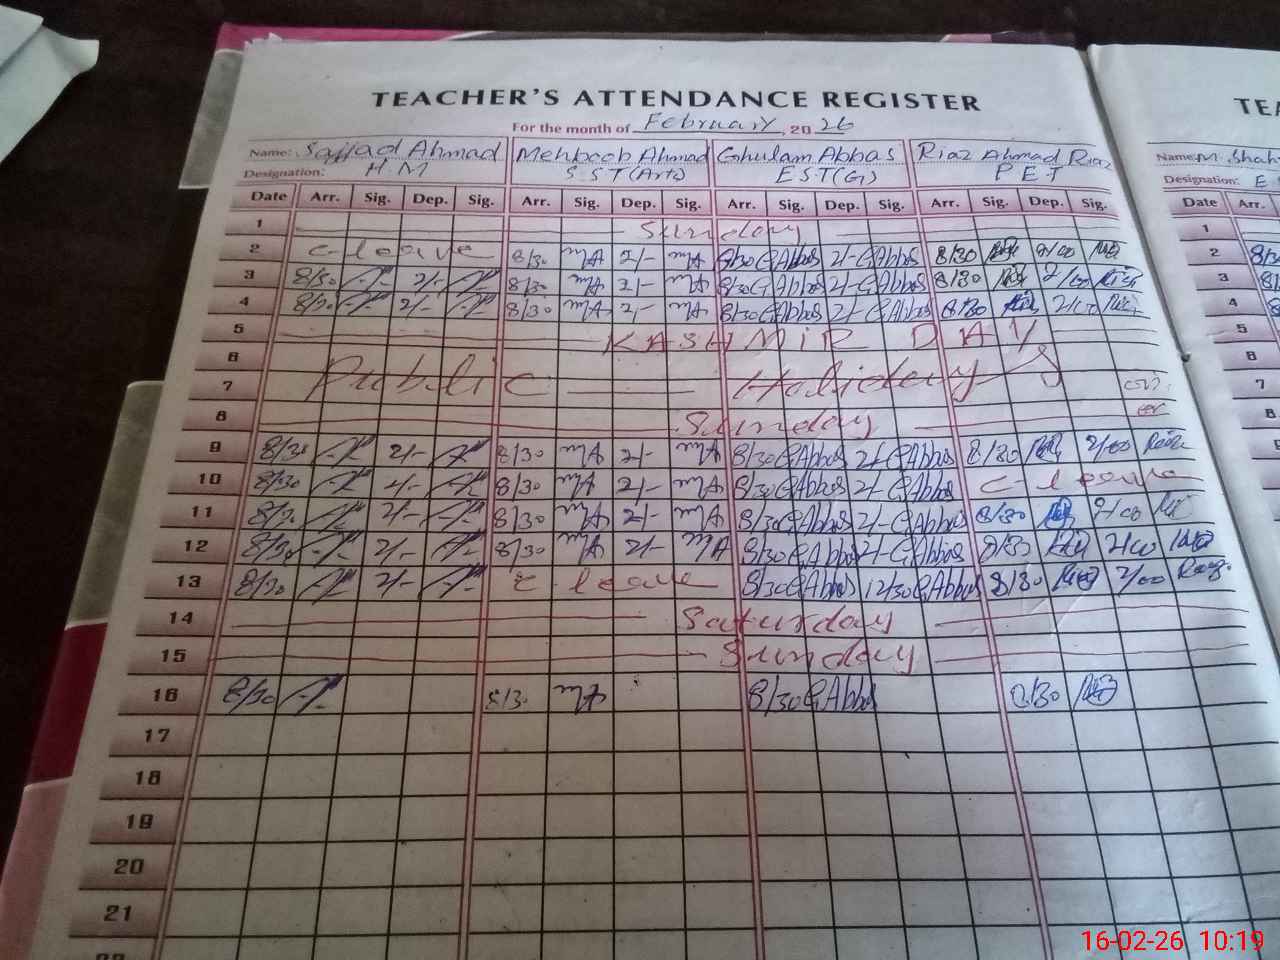 TEACHER'S ATTENDANCE REGISTER
TEA
For the month of February, 20 26
Name: Sajjad Ahmad Mehboob Ahmad Ghulam Abbas Riaz Ahmad Riaz
Name: M. Shah
Designation: H.M S.S.T(Arts) E.S.T(G) P.E.T
Designation: E
Date Arr. Sig. Dep. Sig. Arr. Sig. Dep. Sig. Arr. Sig. Dep. Sig. Arr. Sig. Dep. Sig.
Date Arr.
1 Sunday
1
2 C-leave 8/30 MA 2/- MA 8/30 GAbbas 2/- GAbbas 8/30 2/00
2 8/3
3 8/30 2/- 8/30 MA 2/- MA 8/30 GAbbas 2/- GAbbas 8/30 2/00
3
4 8/30 2/- 8/30 MA 2/- MA 8/30 GAbbas 2/- GAbbas 8/30 2/00
4
5 KASHMIR DAY
5
6
6
7 Public Holiday
7
8 Sunday
8
9 8/30 2/- 8/30 MA 2/- MA 8/30 GAbbas 2/- GAbbas 8/30 2/00
9
10 8/30 2/- 8/30 MA 2/- MA 8/30 GAbbas 2/- GAbbas C-leave
10
11 8/30 2/- 8/30 MA 2/- MA 8/30 GAbbas 2/- GAbbas 8/30 2/00
11
12 8/30 2/- 8/30 MA 2/- MA 8/30 GAbbas 2/- GAbbas 8/30 2/00
12
13 8/30 2/- C leave 8/30 GAbbas 12/30 GAbbas 8/30 2/00
13
14 Saturday
14
15 Sunday
15
16 8/30 8/30 MA 8/30 GAbbas 8/30
16
17
17
18
18
19
19
20
20
21
21
22
16-02-26 10:19